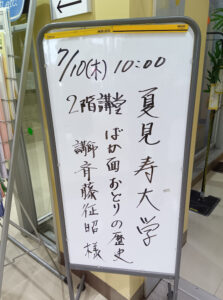 7/10(木) 10:00
夏見寿大学
ばか面おどりの歴史
2階講堂
講師 斉藤征昭様